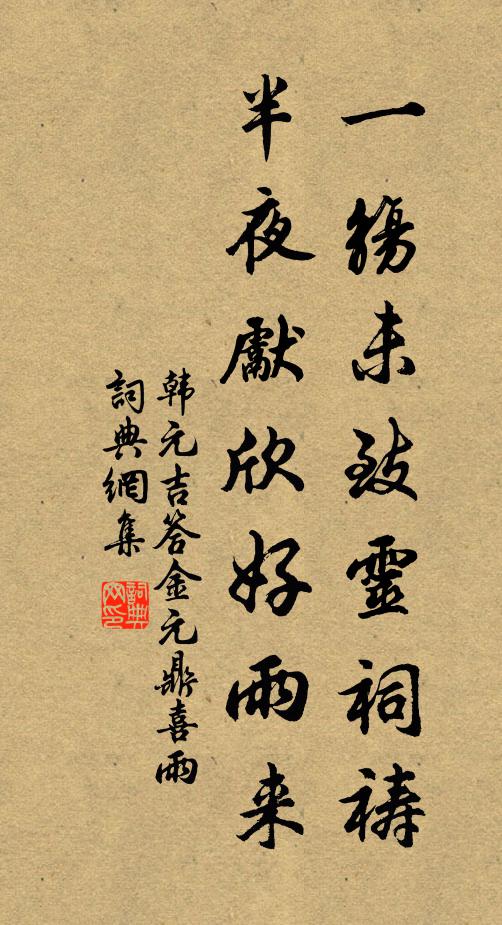 一觴未致靈祠禱
半夜獻欣好雨来
韩元吉答金元鼎喜雨
詞典網集
詞典网印